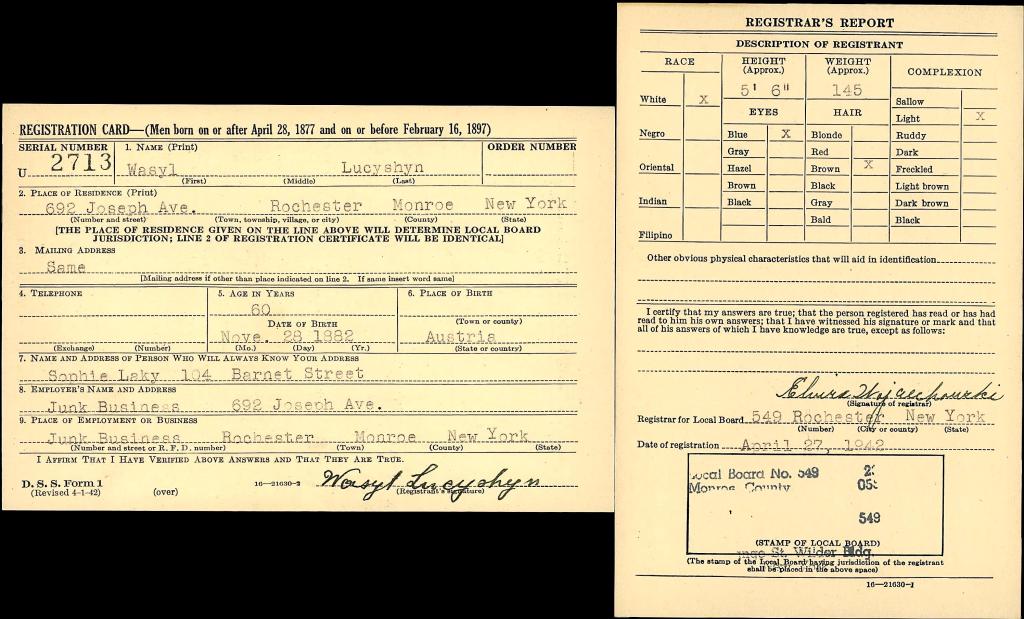 REGISTRATION CARD—(Men born on or after April 28, 1877 and on or before February 16, 1897)
SERIAL NUMBER
1. NAME (Print)
ORDER NUMBER
U 2713
Wasyl Lucyshyn
(First) (Middle) (Last)
2. PLACE OF RESIDENCE (Print)
692 Joseph Ave. Rochester Monroe New York
(Number and street) (Town, township, village, or city) (County) (State)
[THE PLACE OF RESIDENCE GIVEN ON THE LINE ABOVE WILL DETERMINE LOCAL BOARD
JURISDICTION; LINE 2 OF REGISTRATION CERTIFICATE WILL BE IDENTICAL]
3. MAILING ADDRESS
Same
[Mailing address if other than place indicated on line 2. If same insert word same]
4. TELEPHONE
5. AGE IN YEARS
6. PLACE OF BIRTH
60
(Town or county)
DATE OF BIRTH
Nove. 28 1882
Austria
(Exchange) (Number) (Mo.) (Day) (Yr.) (State or country)
7. NAME AND ADDRESS OF PERSON WHO WILL ALWAYS KNOW YOUR ADDRESS
Sophie Laky 104 Barnet Street
8. EMPLOYER'S NAME AND ADDRESS
Junk Business 692 Joseph Ave.
9. PLACE OF EMPLOYMENT OR BUSINESS
Junk Business Rochester Monroe New York
(Number and street or R. F. D. number) (Town) (County) (State)
I AFFIRM THAT I HAVE VERIFIED ABOVE ANSWERS AND THAT THEY ARE TRUE.
D. S. S. Form 1
(Revised 4-1-42) (over)
16—21630-2
Wasyl Lucyshyn
(Registrant's signature)
REGISTRAR'S REPORT
DESCRIPTION OF REGISTRANT
RACE
HEIGHT
(Approx.)
WEIGHT
(Approx.)
COMPLEXION
5' 6" 145
White X
EYES
HAIR
Sallow
Light X
Negro
Blue X
Blonde
Ruddy
Gray
Red
Dark
Oriental
Hazel
Brown X
Freckled
Brown
Black
Light brown
Indian
Black
Gray
Dark brown
Bald
Black
Filipino
Other obvious physical characteristics that will aid in identification
I certify that my answers are true; that the person registered has read or has had
read to him his own answers; that I have witnessed his signature or mark and that
all of his answers of which I have knowledge are true, except as follows:
(Signature of registrar)
Registrar for Local Board 549 Rochester New York
(Number) (City or county) (State)
Date of registration April 27, 1942
Local Board No. 549
Monroe County
549
(STAMP OF LOCAL BOARD)
St. Wilder Bldg.
(The stamp of the Local Board having jurisdiction of the registrant
shall be placed in the above space)
16—21630-1